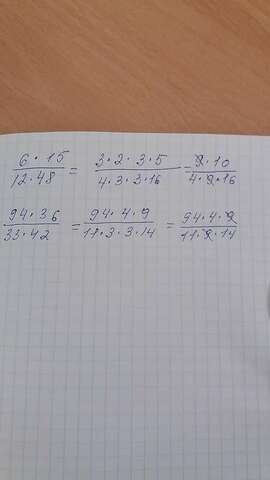 6·15/12·48 = 3·2·3·5/4·3·3·16 = 9·10/4·9·16
94·36/33·42 = 94·4·9/11·3·3·14 = 94·4·9/11·9·14